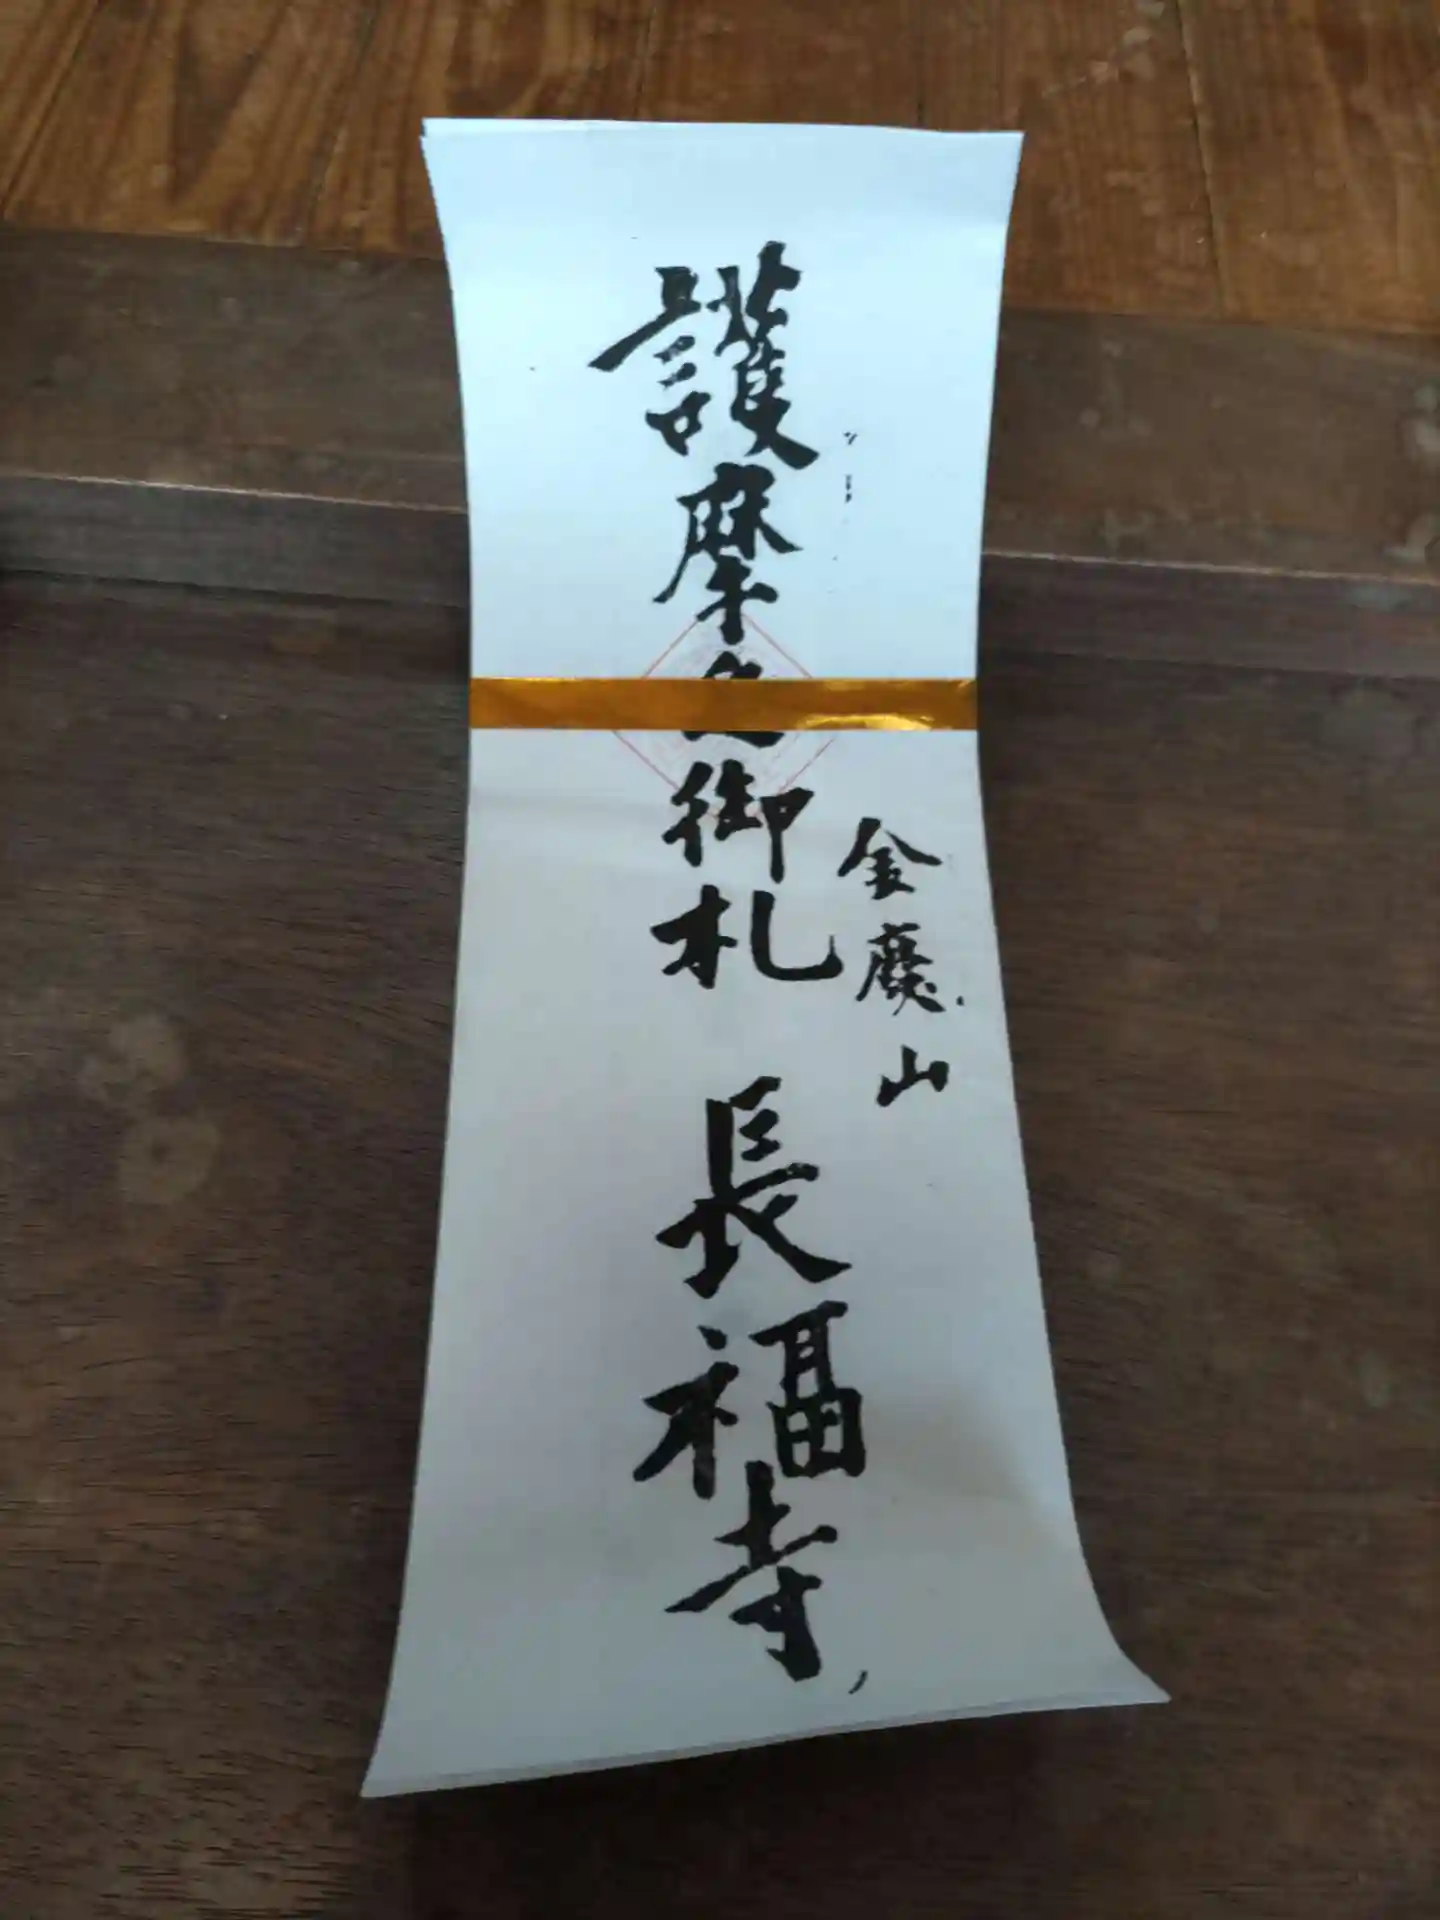 金慶山
護摩御札 長福寺